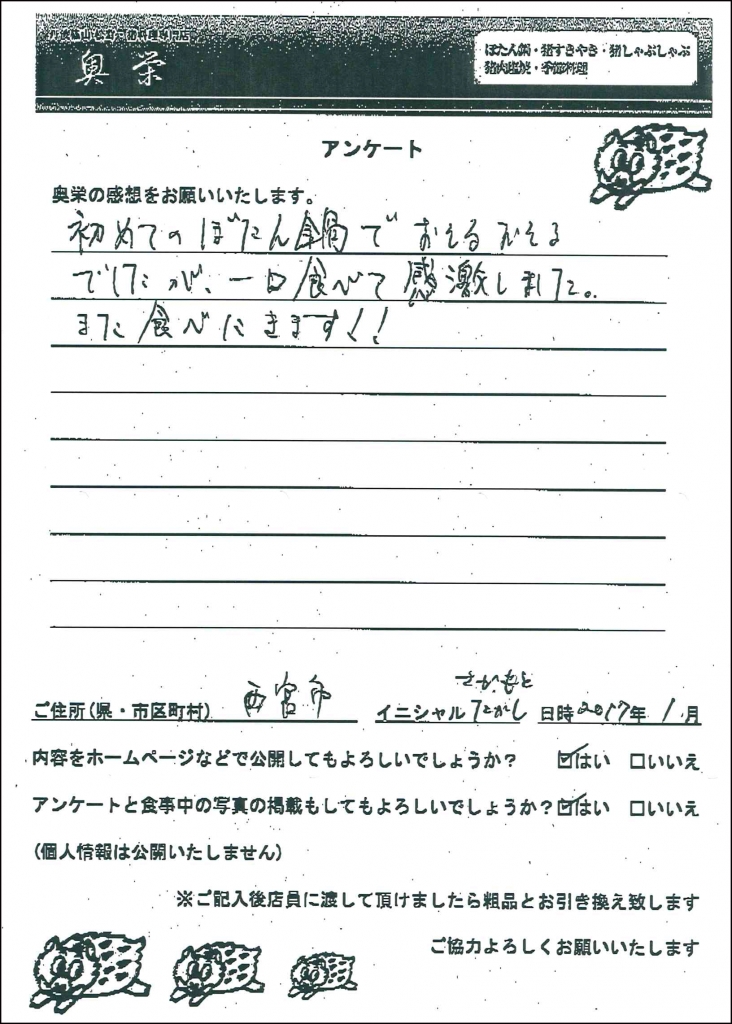 丹波篠山・松園・猪料理専門店
奥栄
ぼたん鍋・猪すきやき・猪しゃぶしゃぶ
猪肉塩焼・季節料理
アンケート
奥栄の感想をお願いいたします。
初めてのぼたん鍋でおそるおそる
でしたが、一口食べて感激しました。
また食べにきます!!
さかもと
ご住所(県・市区町村) 西宮市 イニシャル たかし 日時 2017年 1月
内容をホームページなどで公開してもよろしいでしょうか? ☑はい □いいえ
アンケートと食事中の写真の掲載もしてもよろしいでしょうか? ☑はい □いいえ
(個人情報は公開いたしません)
※ご記入後店員に渡して頂けましたら粗品とお引き換え致します
ご協力よろしくお願いいたします